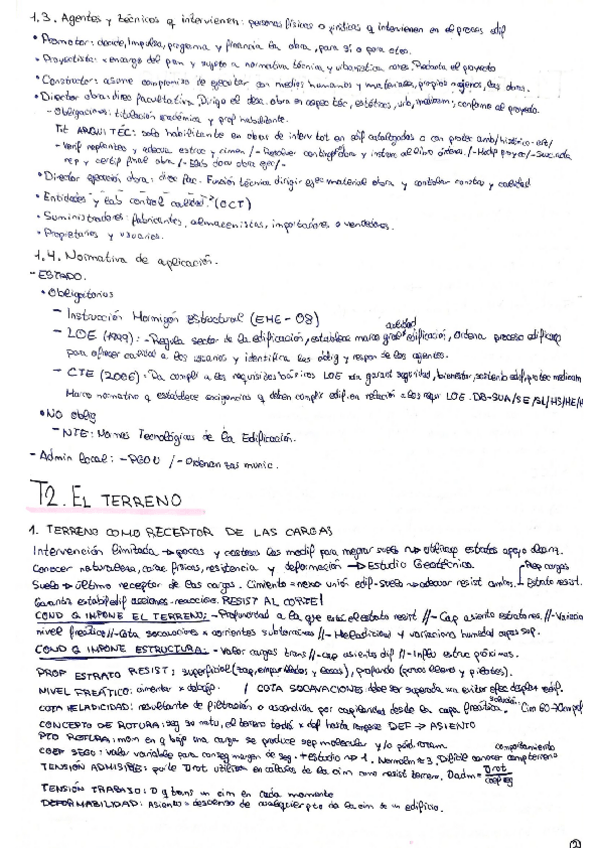 1.3. Agentes y técnicos q intervienen: personas físicas o jurídicas q intervienen en el proces edif
• Promotor: decide, impulsa, programa y financia la obra, para sí o para otros.
• Proyectista: x encargo del prom y sujeto a normativa técnica y urbanística corres. Redacta el proyecto
• Constructor: asume compromiso de ejecutar con medios humanos y materiales, propios o ajenos, las obras.
• Director obra: direc facultativa. Dirige el desa. obra en aspec téc, estéticos, urb, medioam; conforme al proyecto.
- Obligaciones: titulación académica y prof habilitante.
Tit ARQUITÉC: solo habilitante en obras de interv tot en edif catalogados o con protec amb/histórico-art/
- Verif replanteo y adecua estruc y cimen / - Resolver conting obra y instruc al libro órdenes / - Modif proyec / - Suscr acta
rep y certif final obra / - Elab docu obra ejec / -
• Director ejecución obra: direc fac. Función técnica dirigir ejec material obra y controlar constru y calidad
• Entidades y lab control calidad. (OCT)
• Suministradores: fabricantes, almacenistas, importadores o vendedores.
• Propietarios y usuarios.
1.4. Normativa de aplicación.
- ESTADO.
• Obligatorios
- Instrucción Hormigón Estructural (EHE-08)
- LOE (1999): - Regula sector de la edificación, establece marco gral calidad edificación, Ordena proceso edificac
para ofrecer calidad a los usuarios y identifica las oblig y respon de los agentes.
- CTE (2006): Da cumpli a los requisitos básicos LOE garant seguridad, bienestar, sostenib edif y protec medioam
Marco normativo q establece exigencias q deben cumplir edif. en relación a los requi LOE. DB-SUA/SE/SI/HS/HE/H
• NO oblig
- NTE: Normas Tecnológicas de la Edificación.
- Admin local: - PGOU / - Ordenanzas munic.
T2. EL TERRENO
1. TERRENO COMO RECEPTOR DE LAS CARGAS
Intervención limitada → pocas y costosas las modif para mejorar suelo → obligac estratos apoyo
Conocer naturaleza, carac físicas, resistencia y deformación → Estudio Geotécnico
Suelo → último receptor de las cargas. Cimiento = nexo unión edif-suelo → adecuar resist ambos. Rep cargas Estrato resist.
Garantiz estab edif acciones-reacciones. RESIST AL CORTE!
COND Q IMPONE EL TERRENO: - Profundidad a la que está el estrato resist // - Cap asiento estratores // - Variacio
nivel freático // - Cota socavaciones x corrientes subterráneas // - Heladicidad y variaciones humedad capas sup.
COND Q IMPONE ESTRUCTURA: - Valor cargas trans // - cap asiento dif // - Influ estruc próximas.
PROF ESTRATO RESIST: superficial (zap, emparrillados y losas), profundo (pozos y pilotes).
NIVEL FREÁTICO: cimentar x debajo / COTA SOCAVACIONES debe ser superada xa evitar efec edif.
COTA HELADICIDAD: resultante de filtración o ascendida por capilaridad desde la capa freática. solución: Cim 60-70cm prof
CONCEPTO DE ROTURA: seg su natu, el terreno tendrá x def hasta romperse DEF → ASIENTO
PTO ROTURA: mom en q bajo una carga se produce sep molecular y/o
COEF SEGU: valor variables para conseg margen de seg. + estudio → 1. Normalm ≈ 3. Difícil conocer comportamiento terreno
TENSIÓN ADMISIBLE: par le σrot utiliza en cálculos de la cim como resist terreno. σadm = σrot/coef seg
TENSIÓN TRABAJO: σ q trans un cim en cada momento
DEFORMABILIDAD: Asiento = descenso de cualquier pto de la cim de un edificio.
2